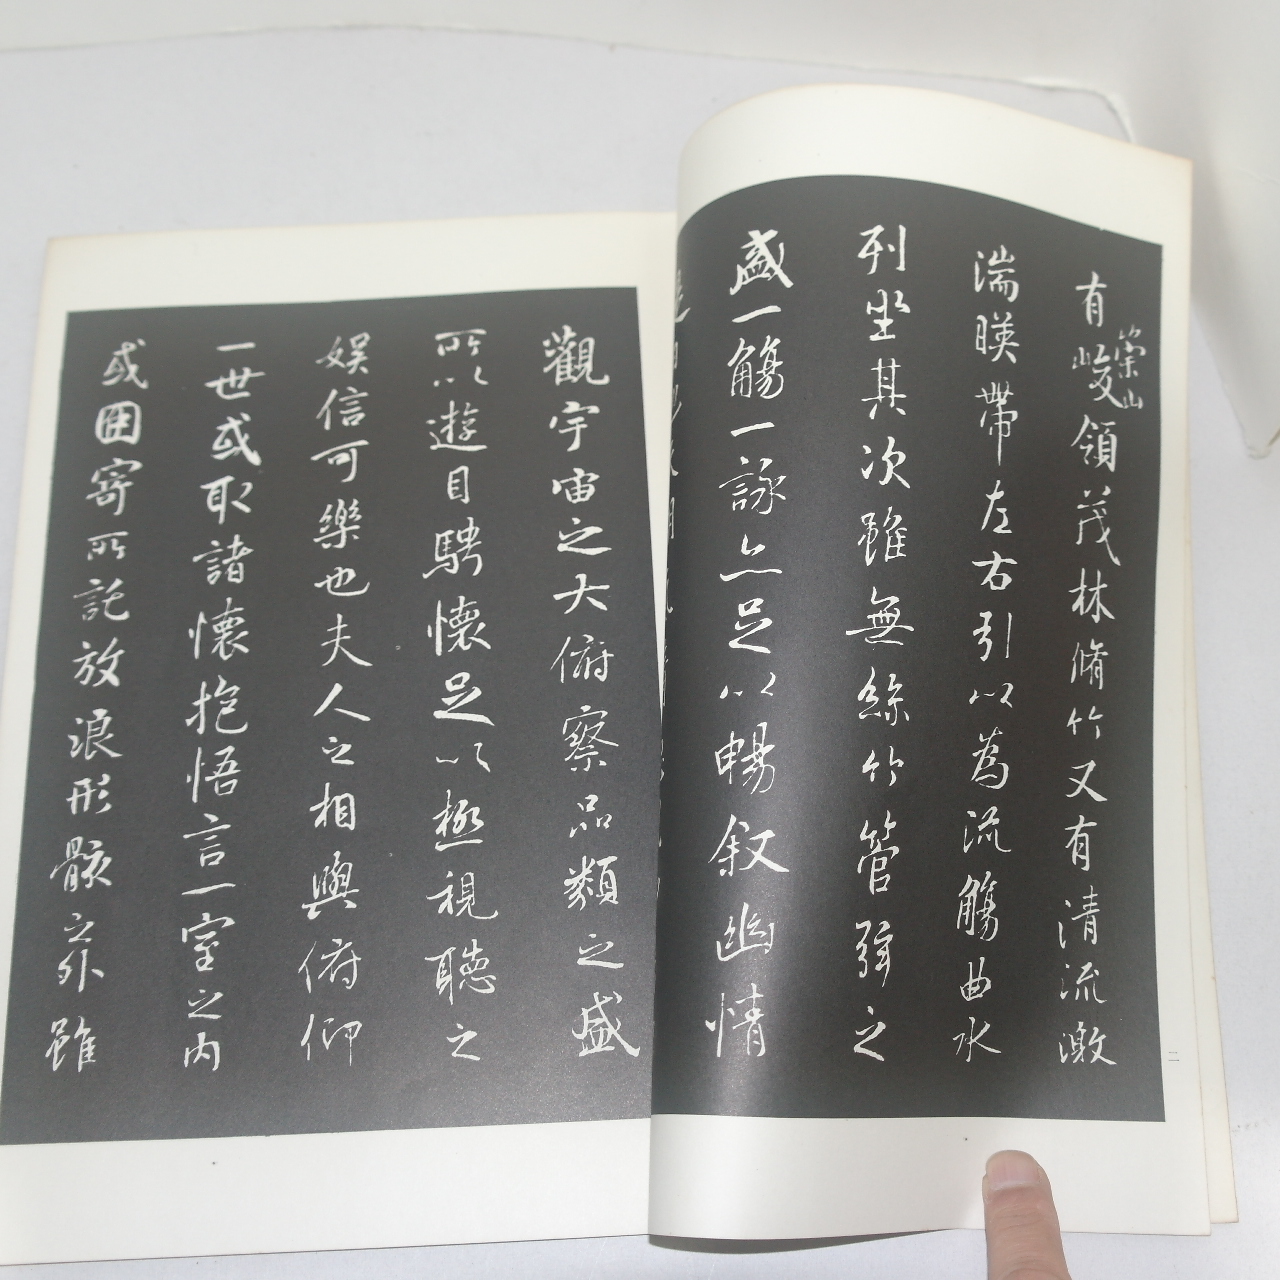 崇山
有峻領茂林脩竹又有清流激
湍暎帶左右引以為流觴曲水
列坐其次雖無絲竹管弦之
盛一觴一詠亦足以暢敘幽情
觀宇宙之大俯察品類之盛
所以遊目騁懷足以極視聽之
娛信可樂也夫人之相與俯仰
一世或取諸懷抱悟言一室之內
或因寄所託放浪形骸之外雖
二